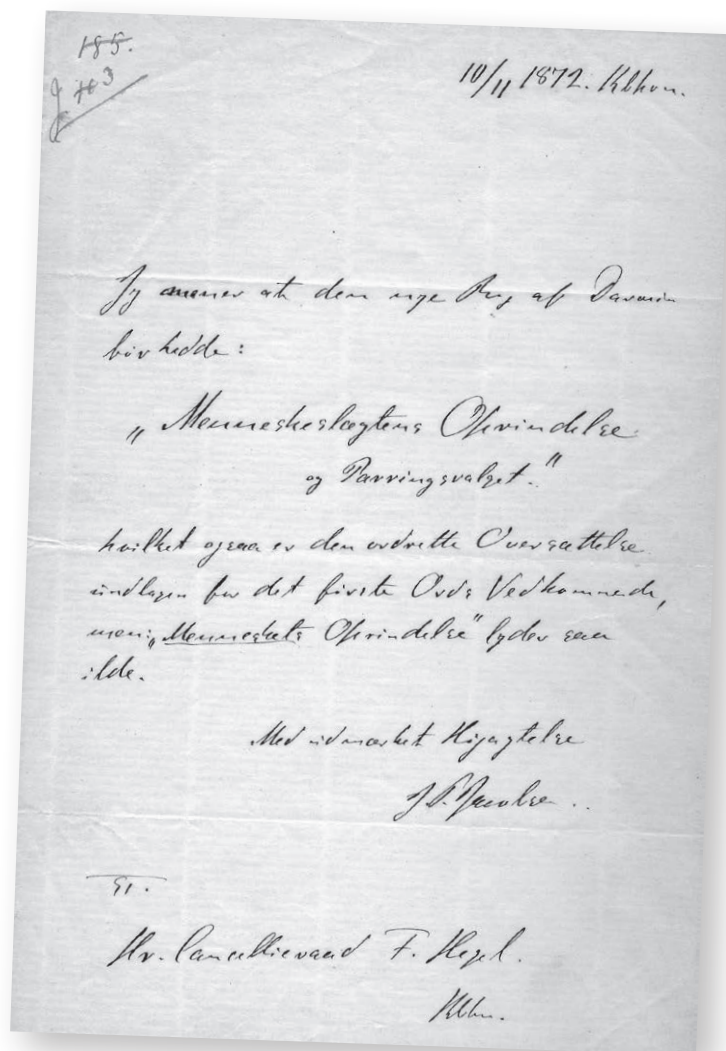 185.
J 113
10/11 1872. Kbhvn.
Jeg mener at den nye Bog af Darwin
bør hedde:
„Menneskeslægtens Oprindelse
og Parringsvalget."
hvilket ogsaa er den ordrette Oversættelse
undtagen for det første Ords Vedkommende,
men: „Menneskets Oprindelse" lyder saa
ilde.
Med udmærket Højagtelse
J. P. Jacobsen.
Hr. Cancelliraad F. Hegel.
Kbhn.